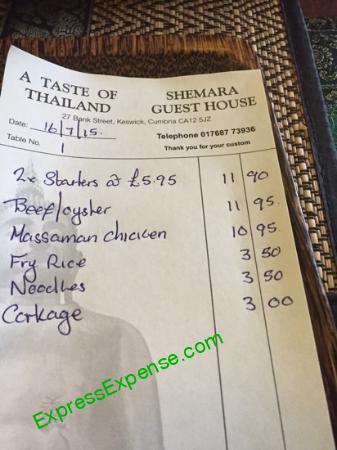 A TASTE OF THAILAND
SHEMARA GUEST HOUSE
27 Bank Street, Keswick, Cumbria CA12 5JZ
Date: 16/7/15.
Telephone 017687 73936
Table No. 1
Thank you for your custom
2x Starters @ £5.95 11 90
Beef/oyster 11 95.
Massaman chicken 10 95
Fry Rice 3 50
Noodles 3 50
Corkage 3 00
ExpressExpense.com